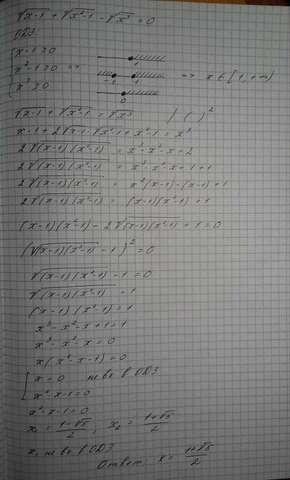 √(x-1) + √(x²-1) - √(x³) = 0
ОДЗ:
{ x-1 ≥ 0
x²-1 ≥ 0 => => x ∈ [1, +∞)
x³ ≥ 0
√(x-1) + √(x²-1) = √(x³) | ( )²
x-1 + 2√(x-1)·√(x²-1) + x²-1 = x³
2√((x-1)(x²-1)) = x³-x²-x+2
2√((x-1)(x²-1)) = x³-x²-x+1+1
2√((x-1)(x²-1)) = x²(x-1)-(x-1)+1
2√((x-1)(x²-1)) = (x-1)(x²-1)+1
(x-1)(x²-1) - 2√((x-1)(x²-1)) + 1 = 0
(√((x-1)(x²-1)) - 1)² = 0
√((x-1)(x²-1)) - 1 = 0
√((x-1)(x²-1)) = 1
(x-1)(x²-1) = 1
x³-x²-x+1 = 1
x³-x²-x = 0
x(x²-x-1) = 0
[ x = 0 не вх в ОДЗ
x²-x-1 = 0
x²-x-1 = 0
x₁ = (1-√5)/2 ; x₂ = (1+√5)/2
x₁ не вх в ОДЗ
Ответ: x = (1+√5)/2